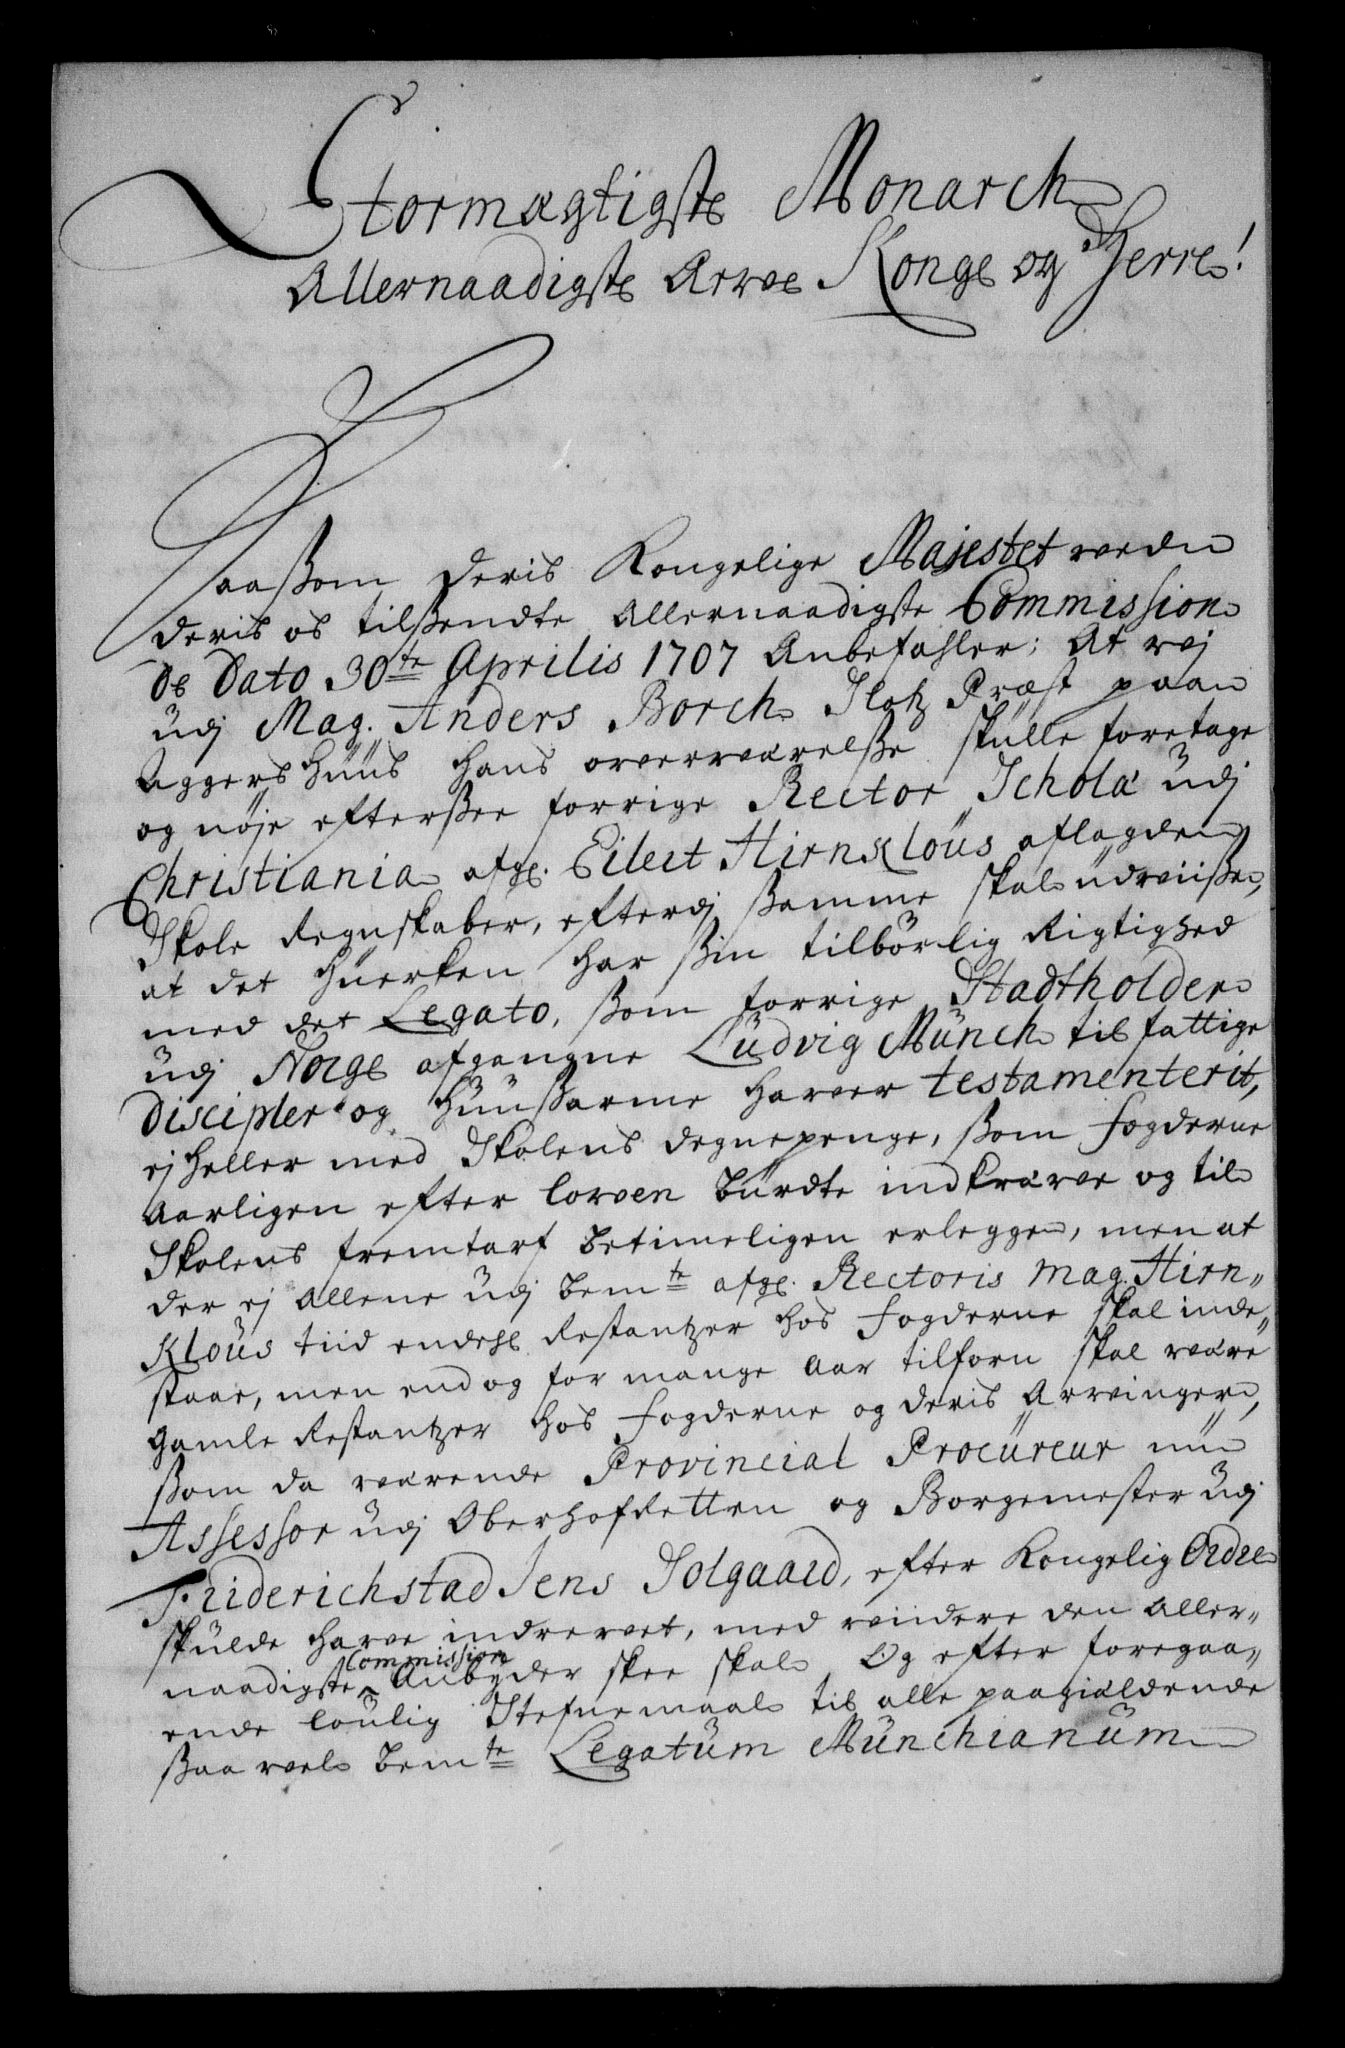 Stormægtigste Monarch
Allernaadigste Arfve Konge og Herre!
Saasom Deris Kongelige Majestet veden
deris os tilsendte Allernaadigste Commission
De Dato 30te Aprilis 1707 Anbefahler: At vj
udj Mag. Anders Borch Slotz Præst paa
Aggershuus hans overværelsse skulle foretage
og nøje eftersee forrige Rector Scholæ udj
Christiania afg. Eilert Hirnklous aflagde
Skole Regnskaber, efterdj samme skal udviisse,
at det huerken har sin tilbørlig Rigtighed
med det Legato, som forrige Stadtholder
udj Norge afgangne Ludvig Munch til fattige
Discipler og huusarme hafver testamenterit,
ej heller med Skolens degnepenge, som fogderne
Aarligen efter loven burdte indkræve og til
Skolens fremtarf betimeligen erlegge, men at
der ej Allene udj bemte afg. Rectoris Mag. Hirn„
klous tiid endehl. Restantzer hos fogderne skal inde„
staae, men end og for mange Aar tilforn skal være
gamle Restantzer hos fogderne og deris Arvinger,
som da værende Provincial Procureur nu
Assessor udj Oberhofretten og Borgemester udj
Friderichstad Jens Solgaard, efter Kongelig Ordre
skulde hafve indrevet, med viidere den Aller„
naadigste Commission Anbyder skee skal. Og efter foregaa„
ende loulig Stefnemaal til alle paagieldende
saa vel bemte Legatum Munchianum